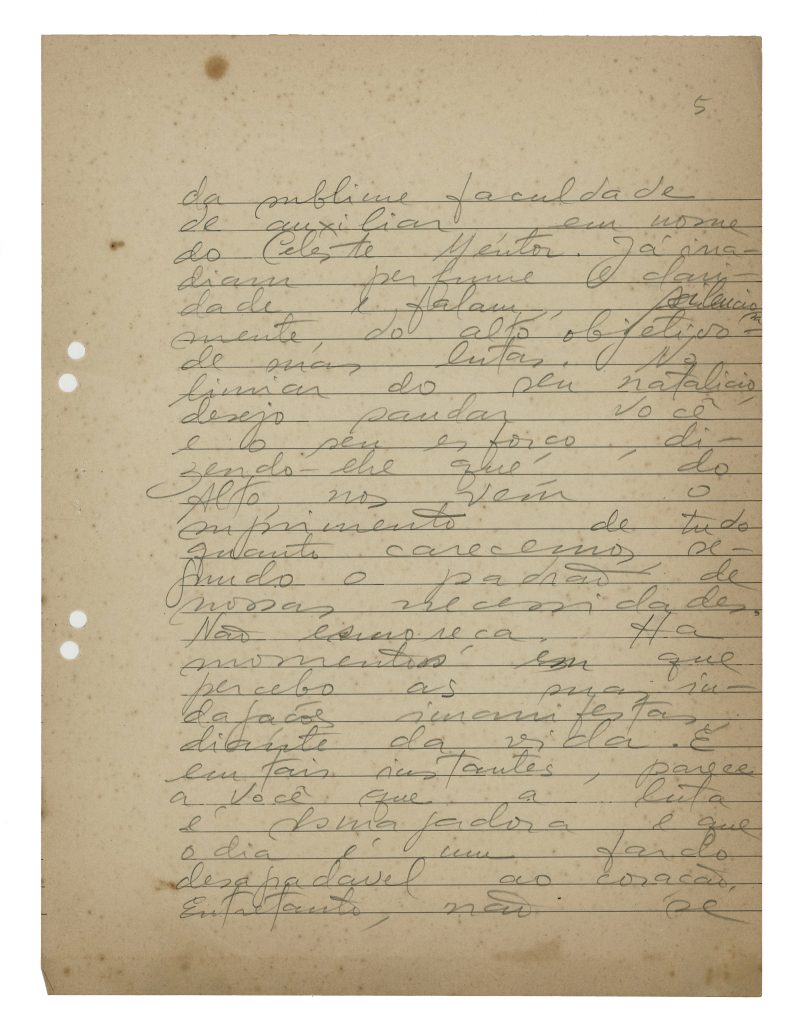 5
da sublime faculdade
de auxiliar em nome
do Celeste Mentor. Já irra-
diam perfume e clari-
dade e falam, silenciosa-
mente, do alto objetivo
de suas lutas. No
limiar do seu natalício,
desejo saudar você
e o seu esforço, di-
zendo-lhe que, do
Alto, nos vem o
suprimento de tudo
quanto carecemos, se-
gundo o padrão de
nossas necessidades.
Não esmoreça. Há
momentos em que
percebo as suas in-
dagações imanifestas,
diante da vida. E
em tais instantes, parece
a você que a luta
é esmagadora e que
o dia é um fardo
desagradável ao coração.
Entretanto, não se